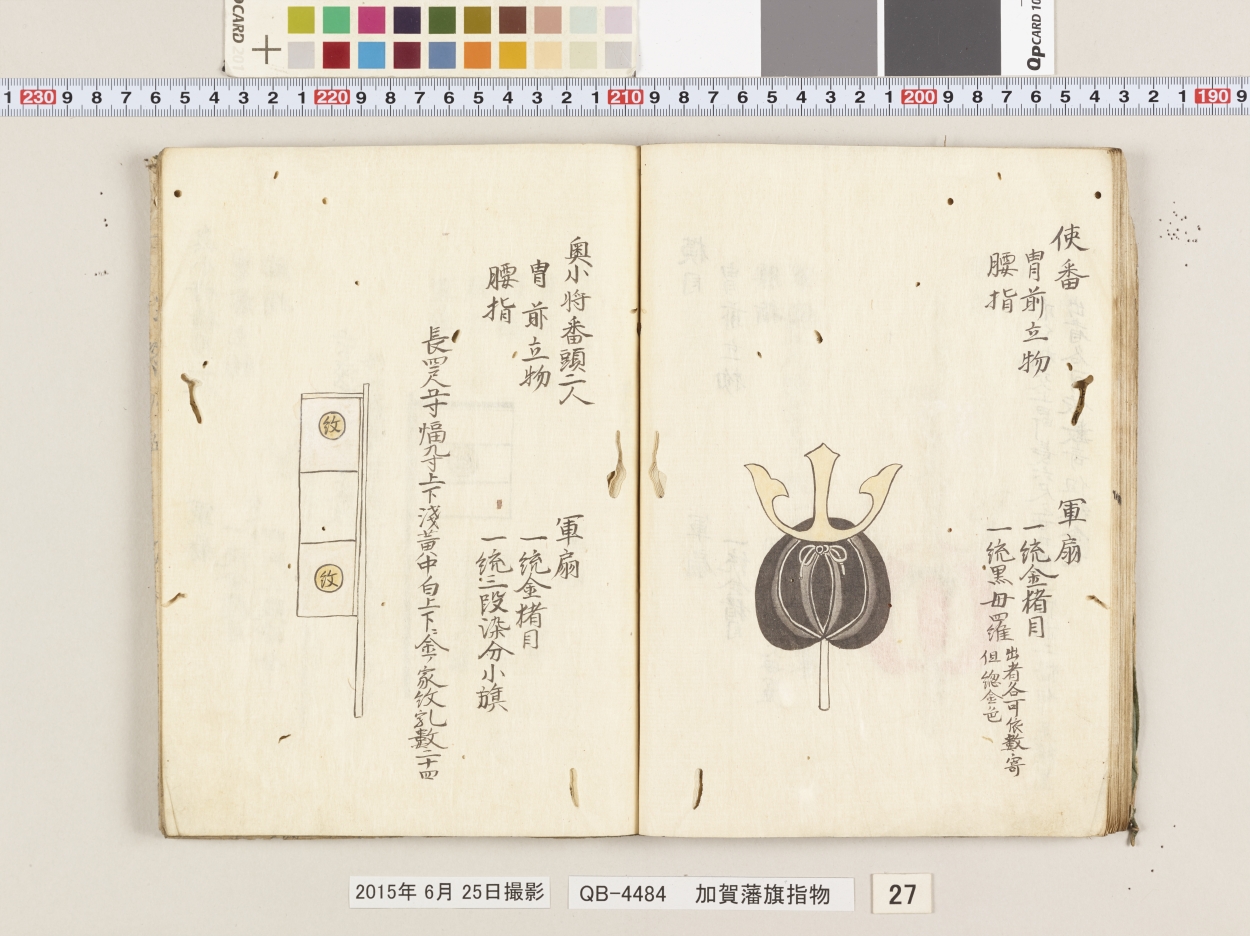 使番
冑前立物
腰指
軍扇
一統金猪目
一統黒母羅
出者各可依數寄
但總金色
奥小将番頭二人
冑前立物
腰指
軍扇
一統金猪目
一統三段染分小旗
長四尺五寸幅九寸上下淺黄中白上下ニ金ノ家紋乳數二十四
紋
紋
QPCARD 201
QPCARD 10
1 230 9 8 7 6 5 4 3 2 1 220 9 8 7 6 5 4 3 2 1 210 9 8 7 6 5 4 3 2 1 200 9 8 7 6 5 4 3 2 1 190 9
2015年 6月 25日撮影
QB-4484 加賀藩旗指物
27